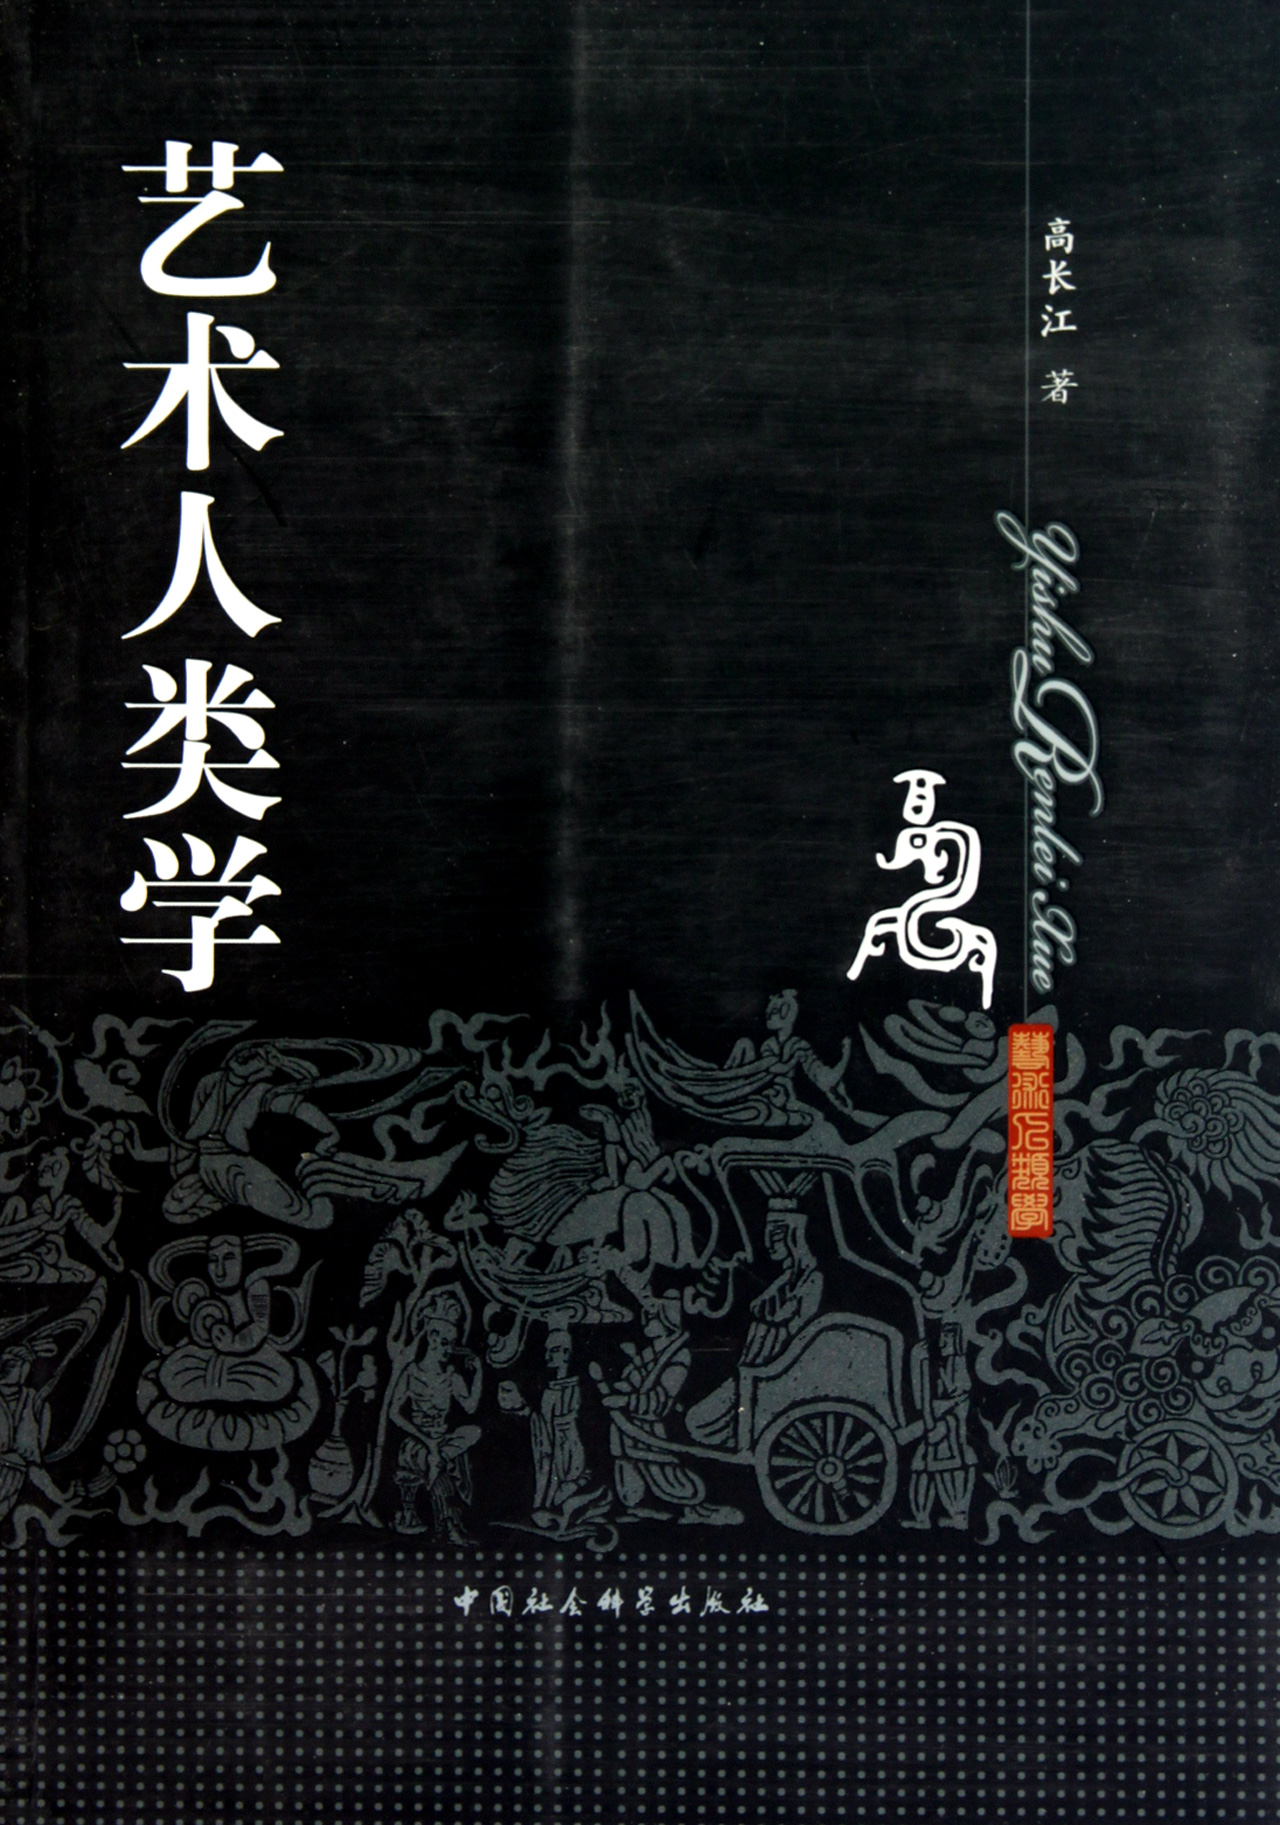 艺术人类学
高长江 著
Yishu Renlei Xue
藝術人類學
中国社会科学出版社